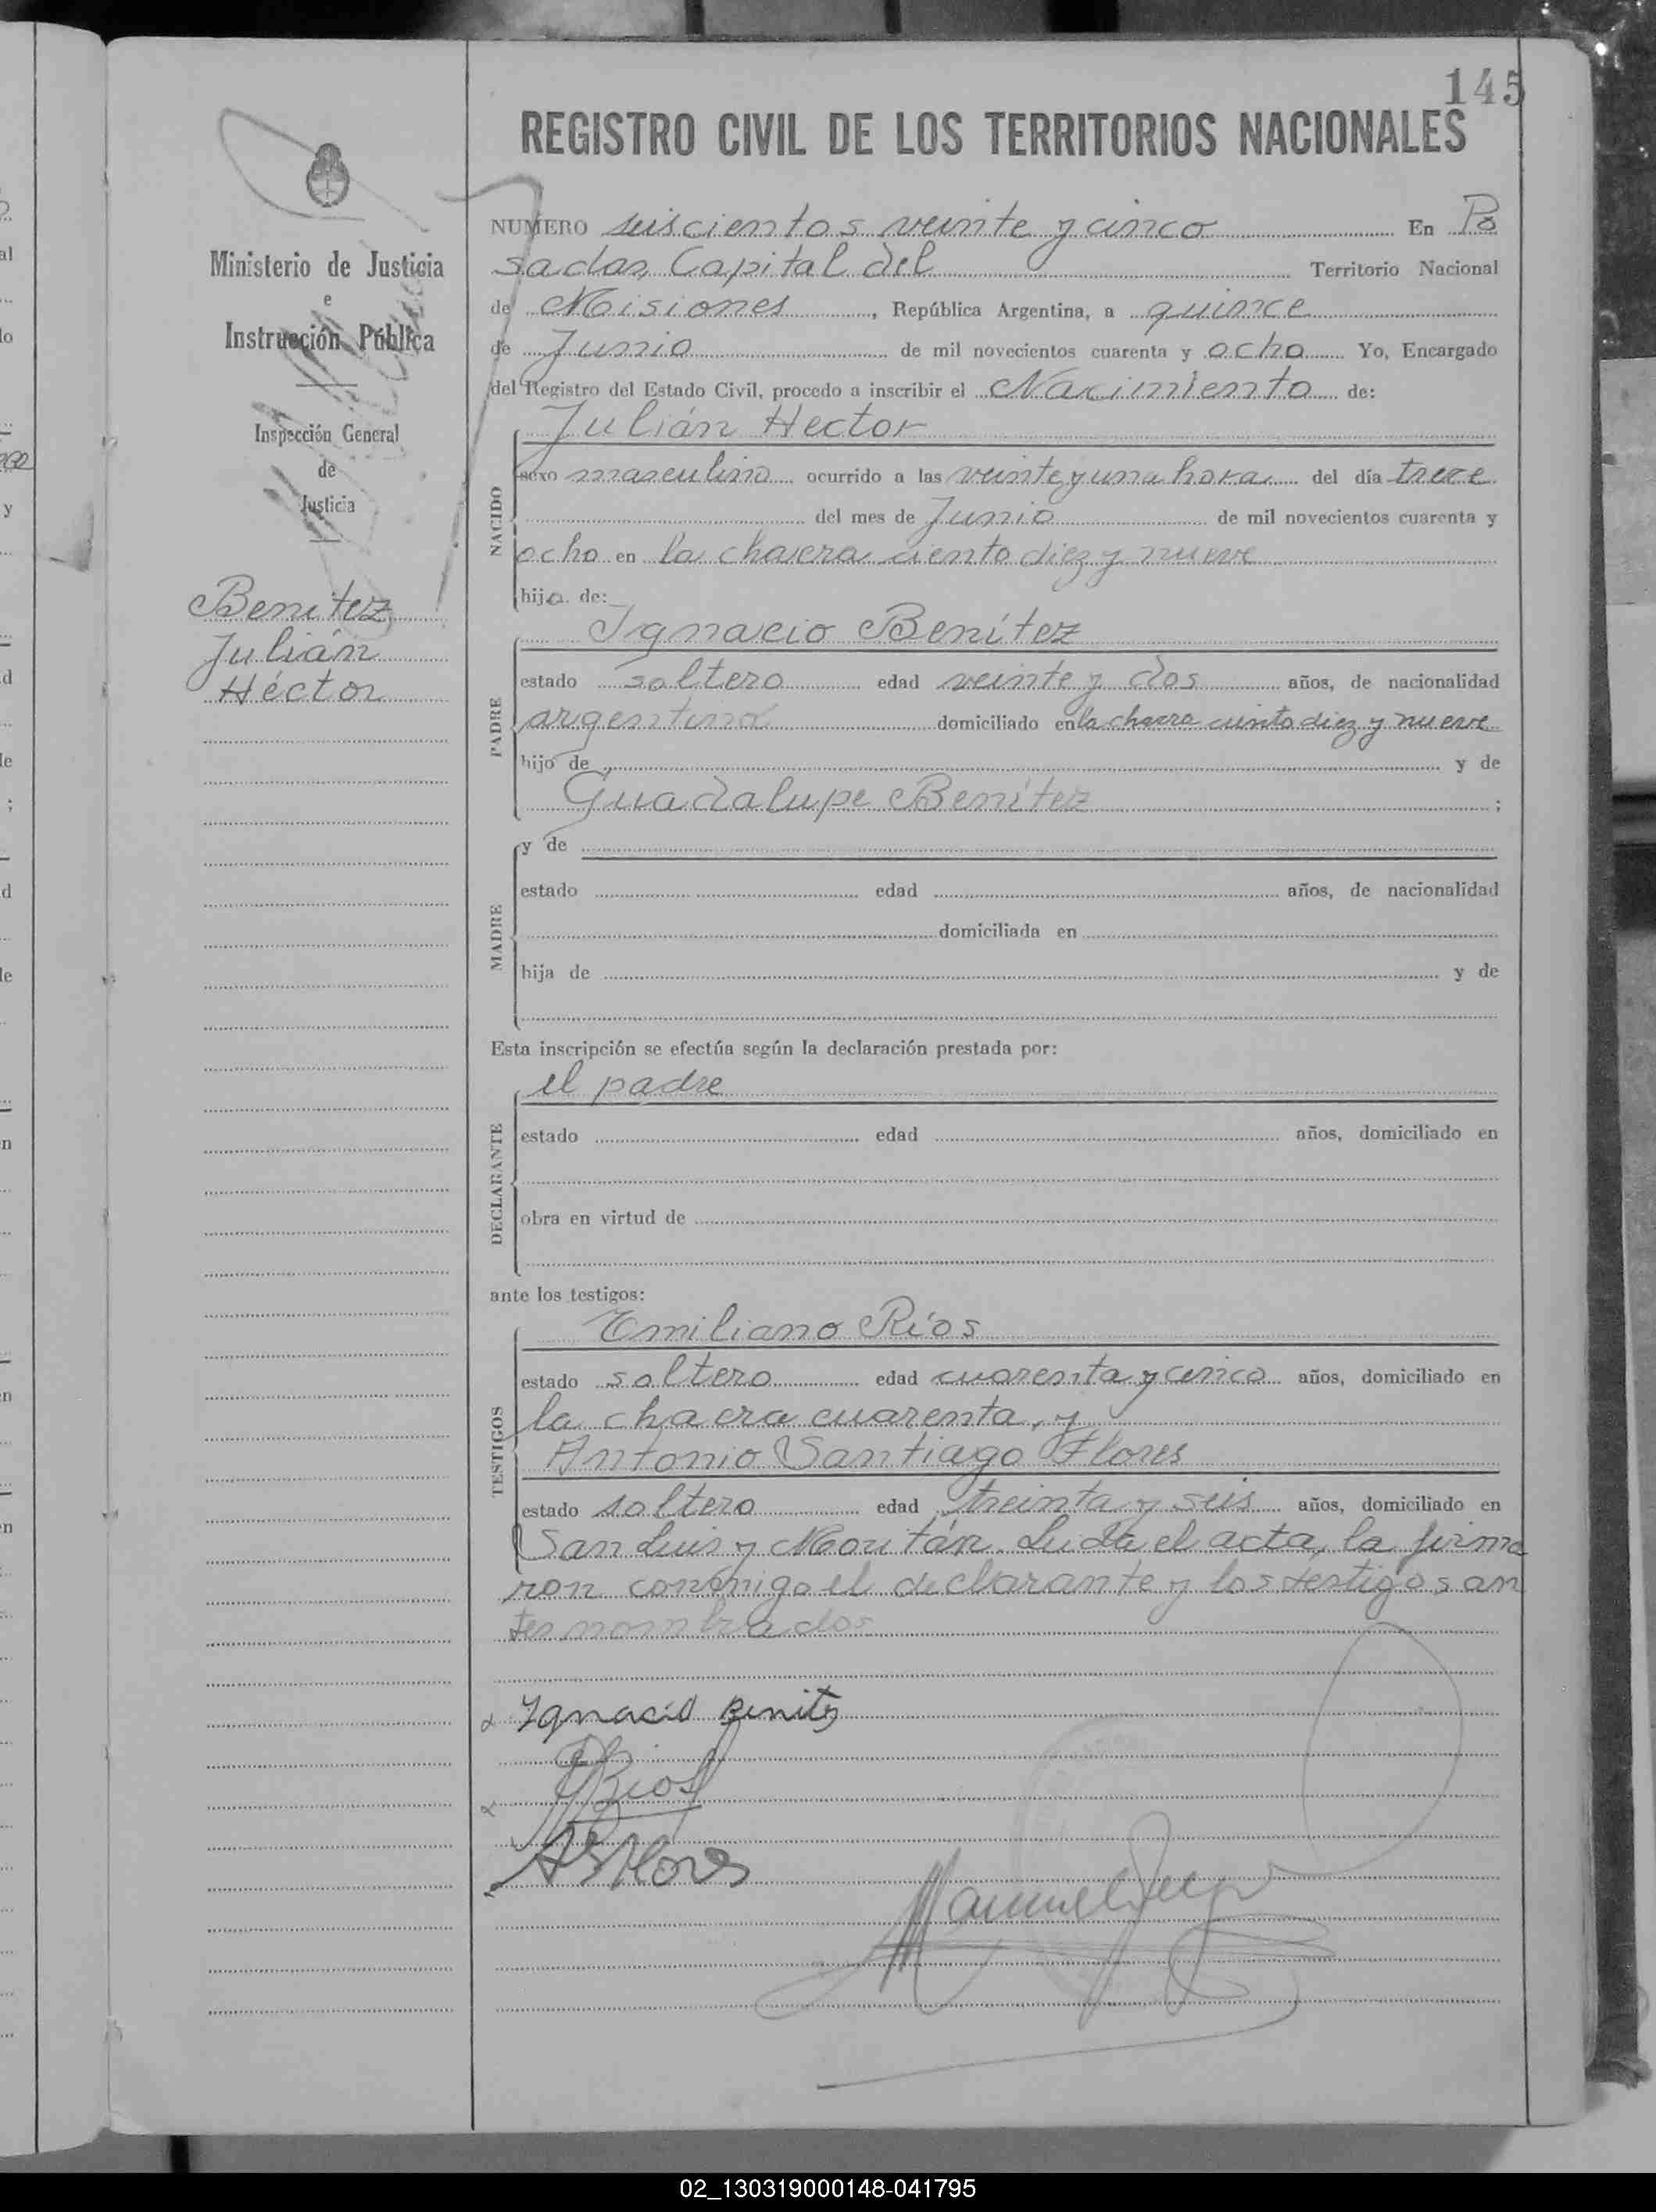 145
REGISTRO CIVIL DE LOS TERRITORIOS NACIONALES
Ministerio de Justicia
e
Instrucción Pública
Inspección General
de
Justicia
Benitez
Julián
Héctor
NUMERO seiscientos veinte y cinco En Po
sadas, Capital del Territorio Nacional
de Misiones, República Argentina, a quince
de Junio de mil novecientos cuarenta y ocho Yo, Encargado
del Registro del Estado Civil, procedo a inscribir el Nacimiento de:
NACIDO
Julián Hector
sexo masculino ocurrido a las veinte y una hora del día trece
del mes de Junio de mil novecientos cuarenta y
ocho en la chacra ciento diez y nueve
hijo de:
PADRE
Ignacio Benítez
estado soltero edad veinte y dos años, de nacionalidad
argentino domiciliado en la chacra ciento diez y nueve
hijo de y de
Guadalupe Benítez ;
MADRE
y de
estado edad años, de nacionalidad
domiciliada en
hija de y de
Esta inscripción se efectúa según la declaración prestada por:
DECLARANTE
el padre
estado edad años, domiciliado en
obra en virtud de
ante los testigos:
TESTIGOS
Emiliano Ríos
estado soltero edad cuarenta y cinco años, domiciliado en
la chacra cuarenta, y
Antonio Santiago Flores
estado soltero edad treinta y seis años, domiciliado en
San Luis y Moritán. Leída el acta, la firma
ron conmigo el declarante y los testigos an
tes nombrados
Ignacio Benites
Rios
AS Flores
Manuel
02_130319000148-041795